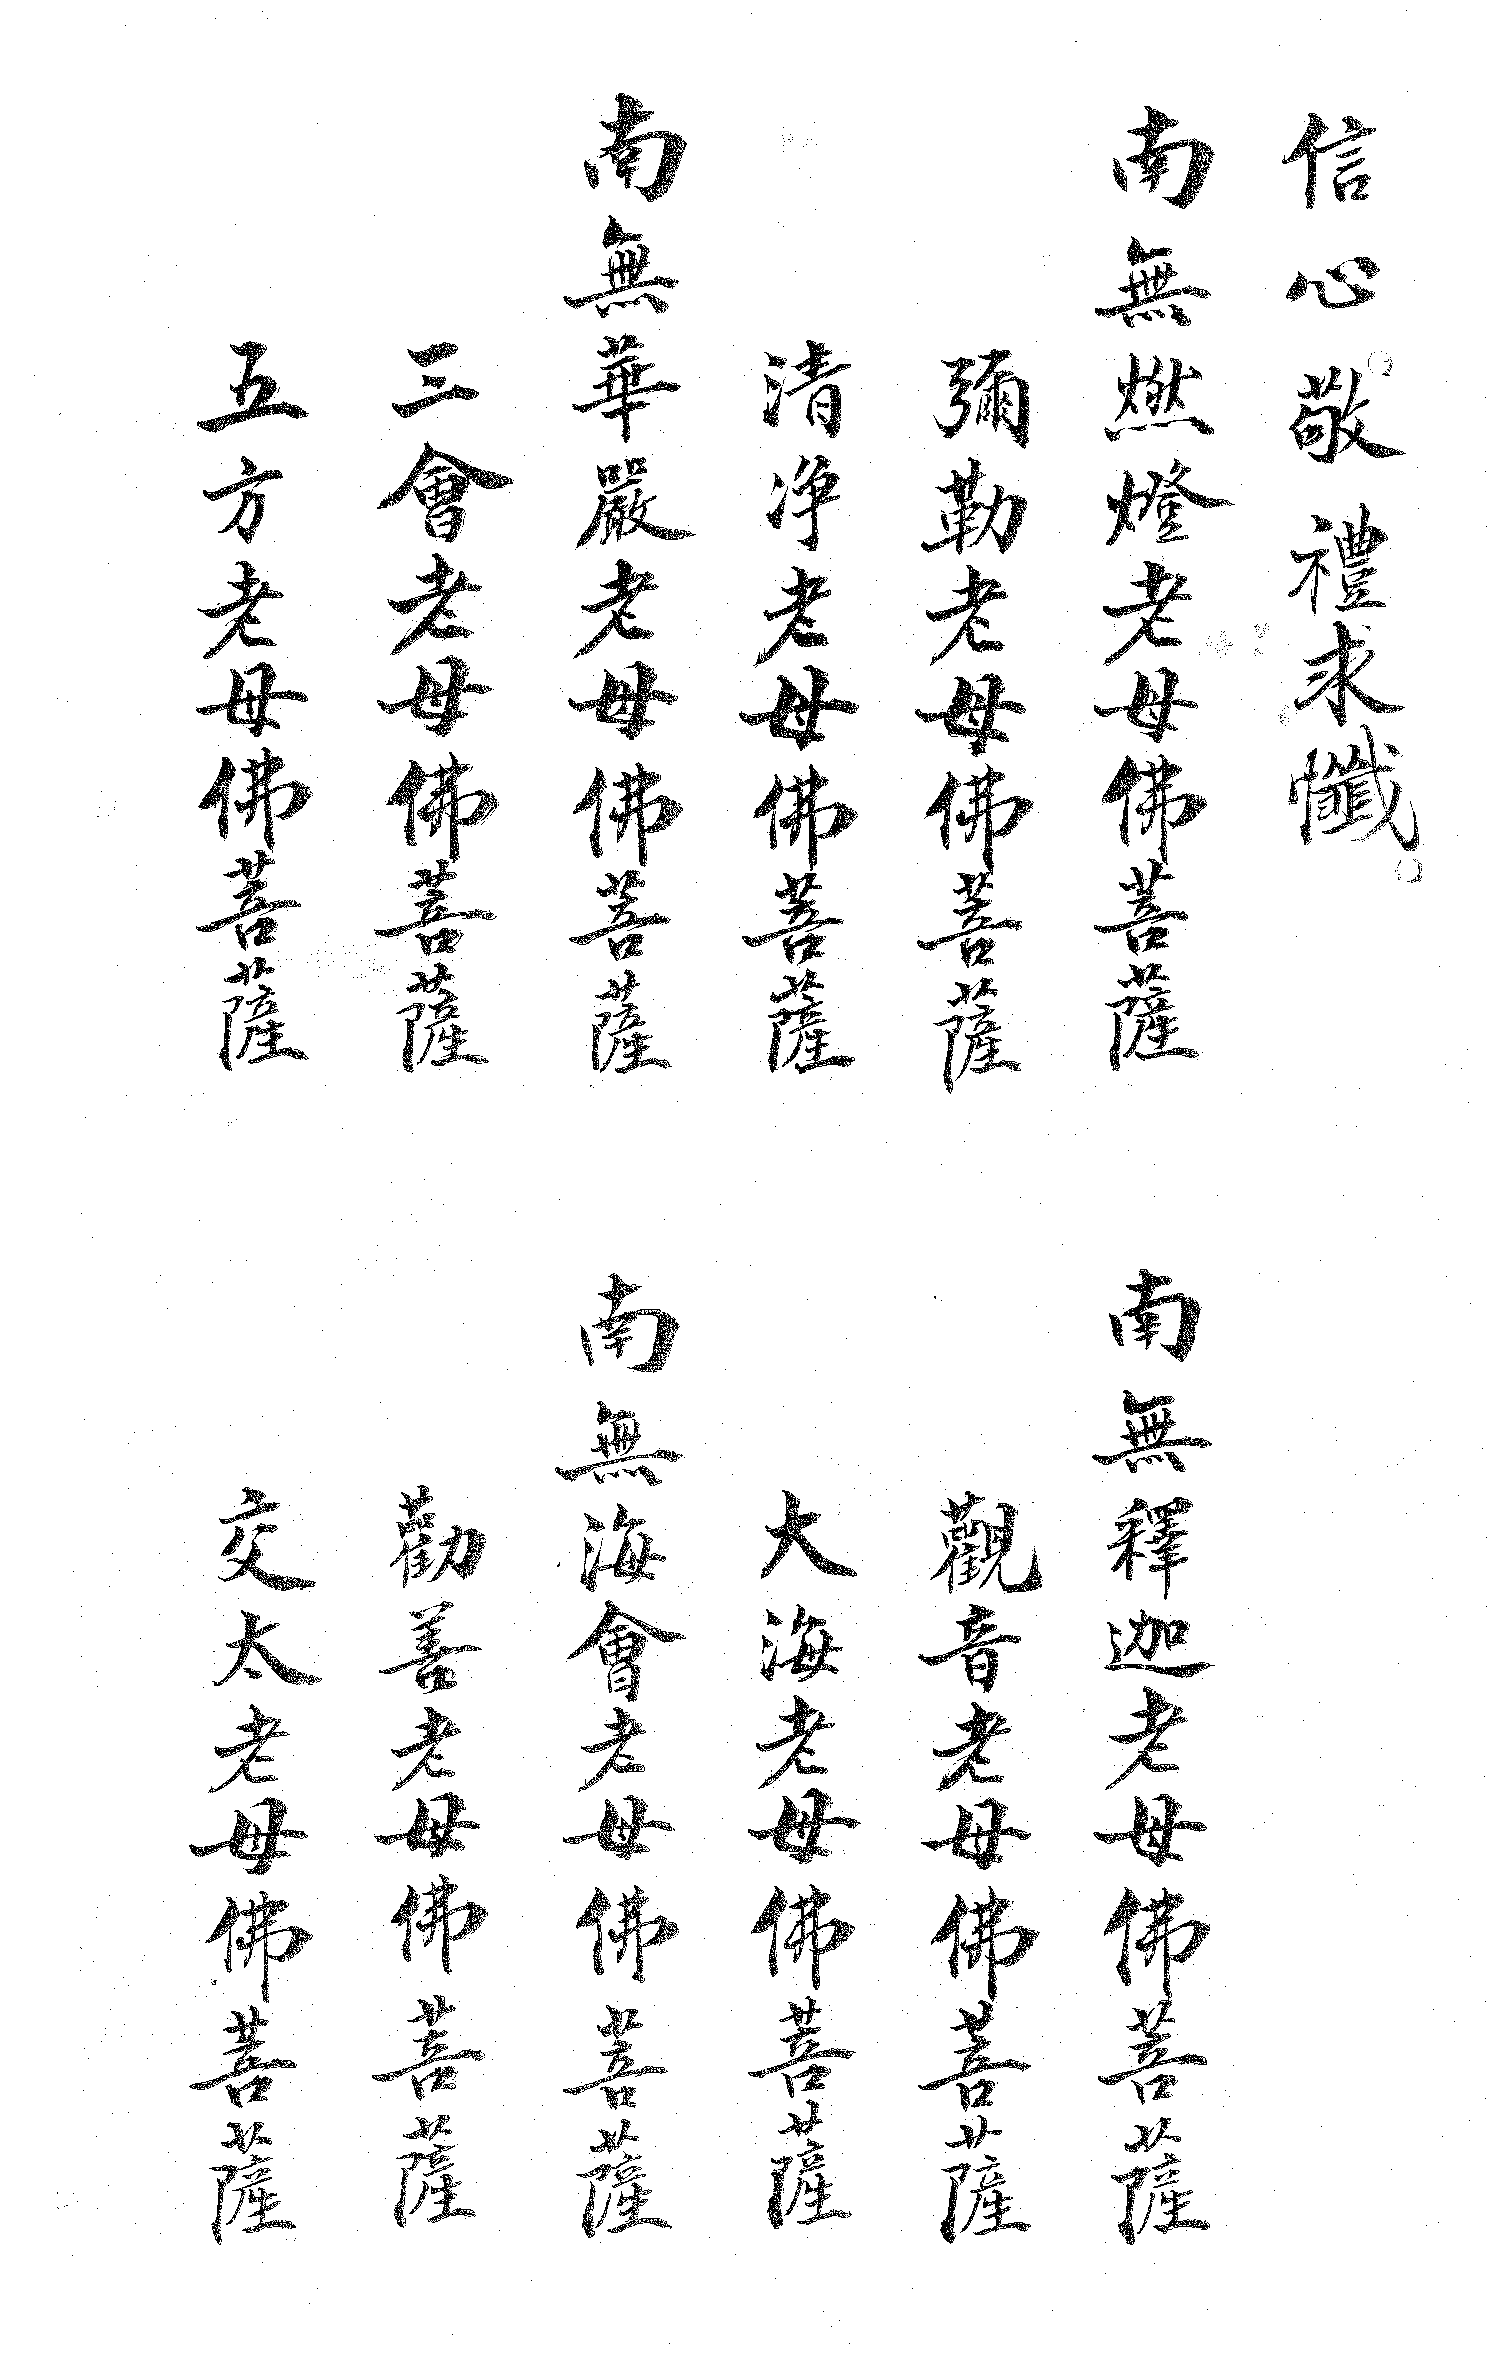 信心敬禮求懺
南無燃燈老母佛菩薩
南無釋迦老母佛菩薩
彌勒老母佛菩薩
觀音老母佛菩薩
清净老母佛菩薩
大海老母佛菩薩
南無華嚴老母佛菩薩
南無海會老母佛菩薩
三會老母佛菩薩
勸善老母佛菩薩
五方老母佛菩薩
交太老母佛菩薩